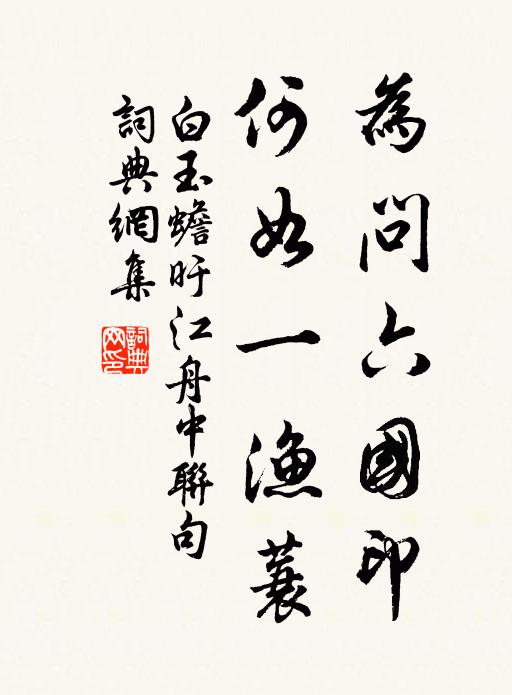 為問六國印
何如一漁蓑
白玉蟾盱江舟中聯句
詞典網集
詞典網印